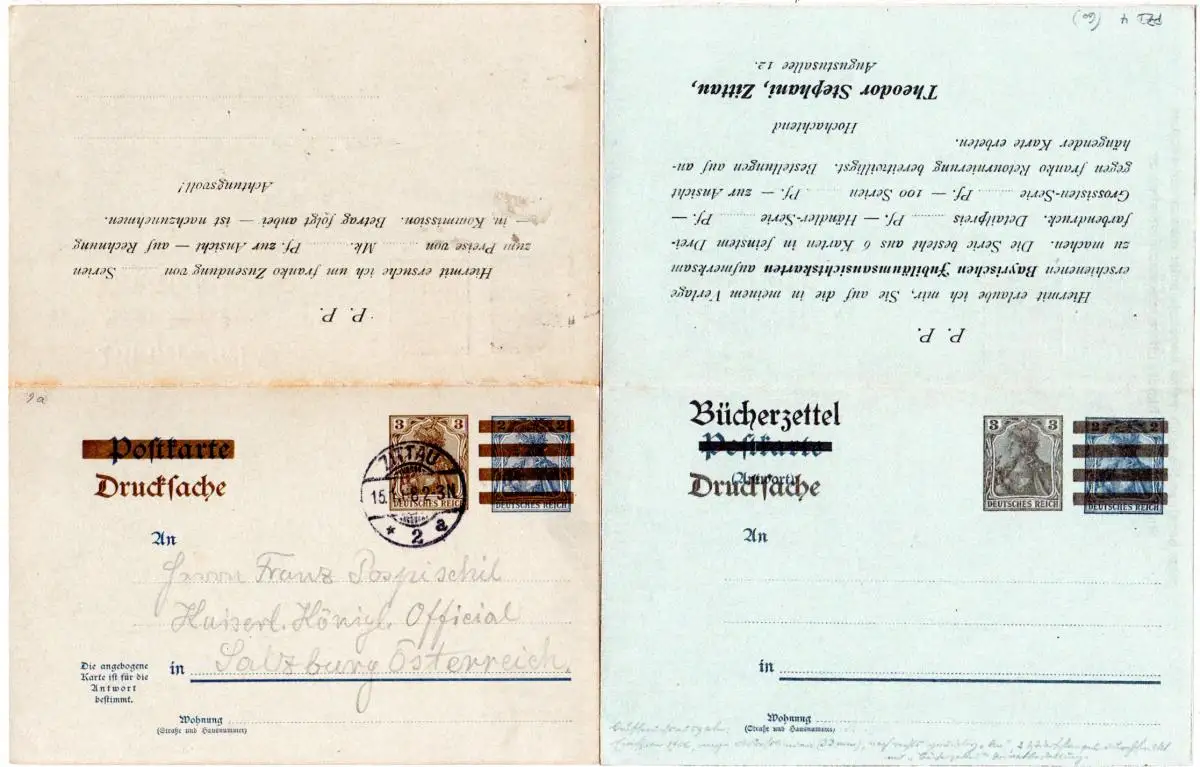 Hiermit ersuche ich um franko Zusendung von ........ Serien
zum Preise von ........ Mk. ........ Pf. zur Ansicht — auf Rechnung
— in Kommission. Betrag folgt anbei — ist nachzunehmen.
Achtungsvoll!
P. P.
9a
Postkarte
Drucksache
3 3
2 2
DEUTSCHES REICH
DEUTSCHES REICH
ZITTAU
15.
2-3N
* 2 a
An
Herrn Franz Pospischil
Kaiserl. Königl. Official
in Salzburg Österreich.
Die angebogene
Karte ist für die
Antwort
bestimmt.
Wohnung
(Straße und Hausnummer)
P. P.
Hiermit erlaube ich mir, Sie auf die in meinem Verlage
erschienenen Bayrischen Jubiläumsansichtskarten aufmerksam
zu machen. Die Serie besteht aus 6 Karten in feinstem Drei-
farbendruck. Detailpreis ........ Pf. — Händler-Serie ........ Pf. —
Grossisten-Serie ........ Pf. — 100 Serien ........ Pf. — zur Ansicht
gegen franko Retournierung bereitwilligst. Bestellungen auf an-
hängender Karte erbeten.
Hochachtend
Theodor Stephani, Zittau,
Augustusallee 12.
Bücherzettel
Postkarte
(Antwort)
Drucksache
3 3
2 2
DEUTSCHES REICH
DEUTSCHES REICH
An
in
Wohnung
(Straße und Hausnummer)